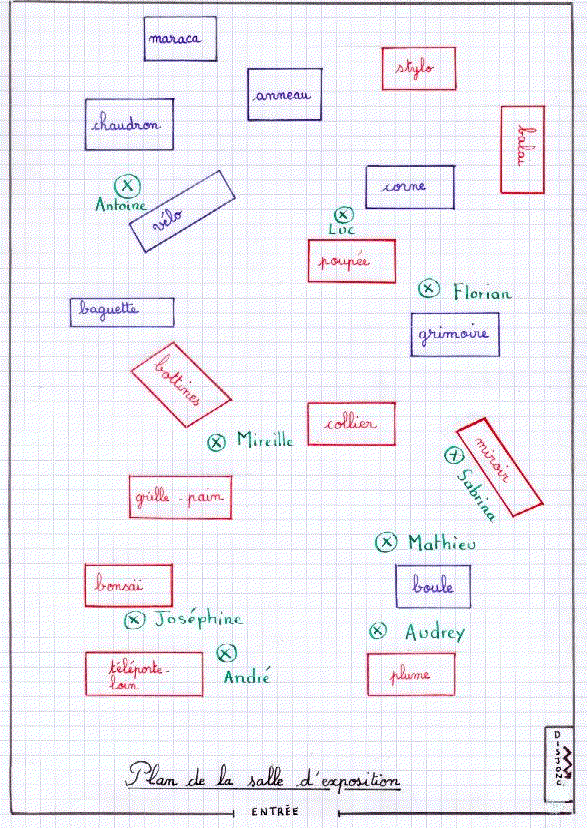 maraca
stylo
anneau
chaudron
balai
Antoine
corne
vélo
Luc
poupée
Florian
baguette
grimoire
bottines
collier
Mireille
miroir
Sabrina
grille-pain
Mathieu
bonsaï
boule
Joséphine
Audrey
téléporte-
loin
André
plume
DISJONC.
Plan de la salle d'exposition
ENTRÉE